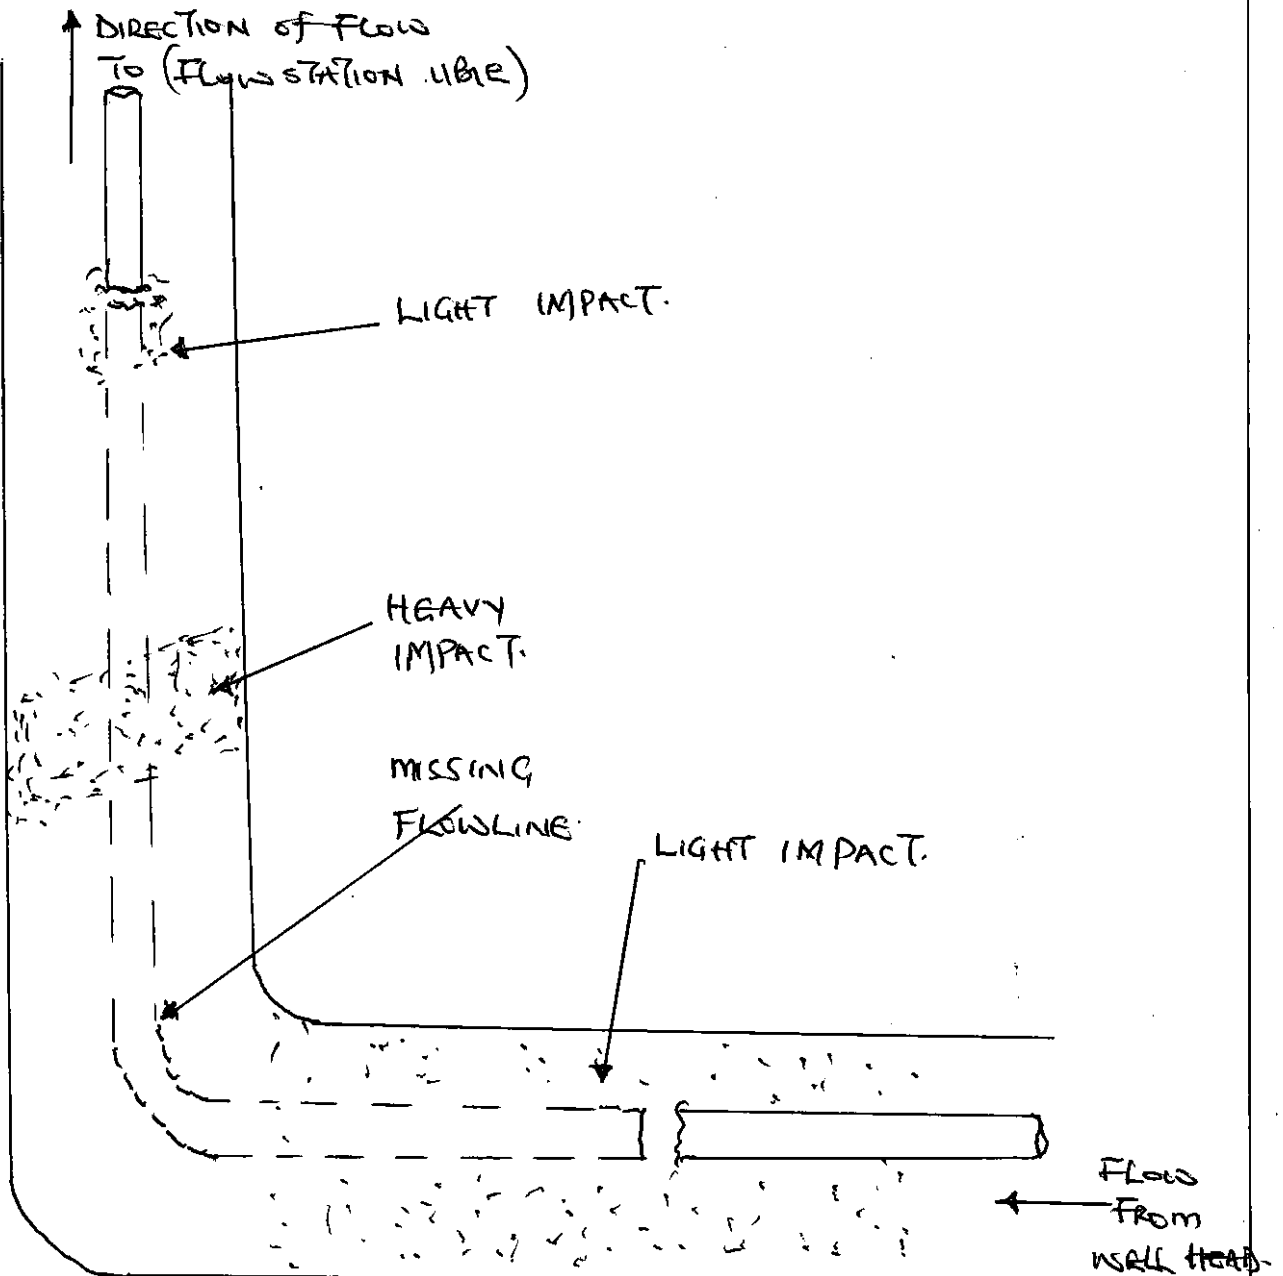 DIRECTION OF FLOW
TO (FLOWSTATION UBIE)
LIGHT IMPACT.
HEAVY
IMPACT.
MISSING
FLOWLINE.
LIGHT IMPACT.
FLOW
FROM
WELL HEAD.